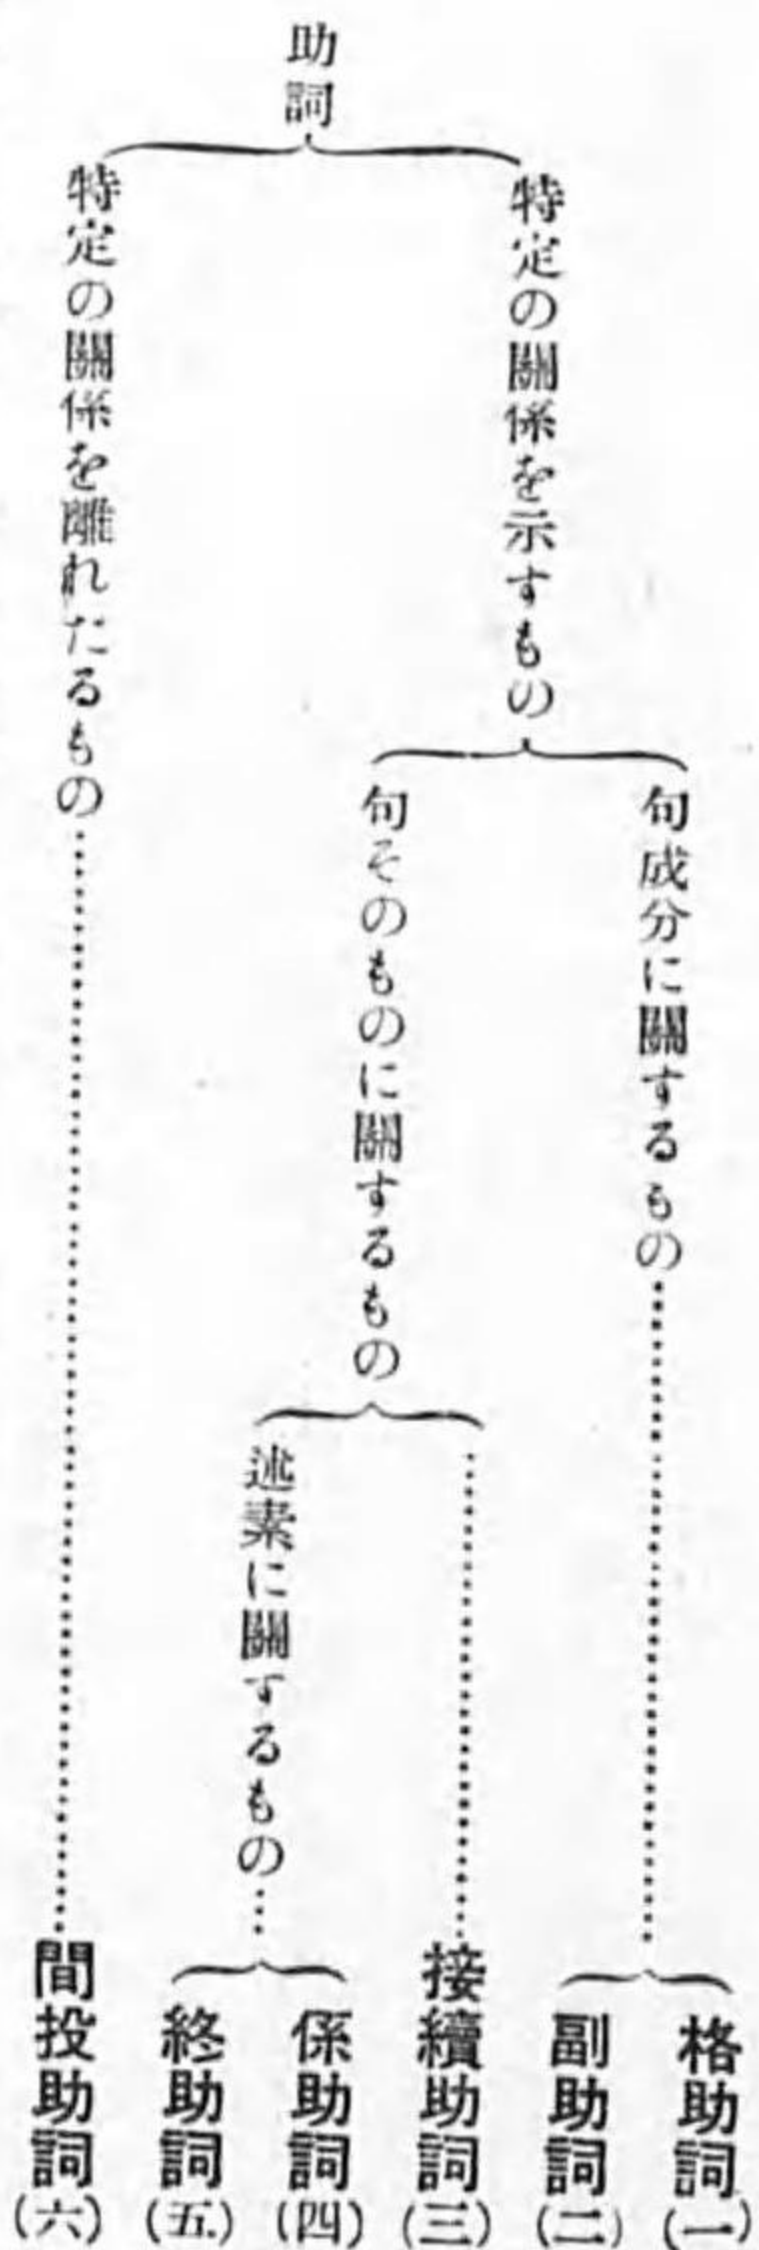 助詞
特定の關係を示すもの
句成分に關するもの
格助詞(一)
副助詞(二)
句そのものに關するもの
接續助詞(三)
述素に關するもの
係助詞(四)
終助詞(五)
特定の關係を離れたるもの
間投助詞(六)